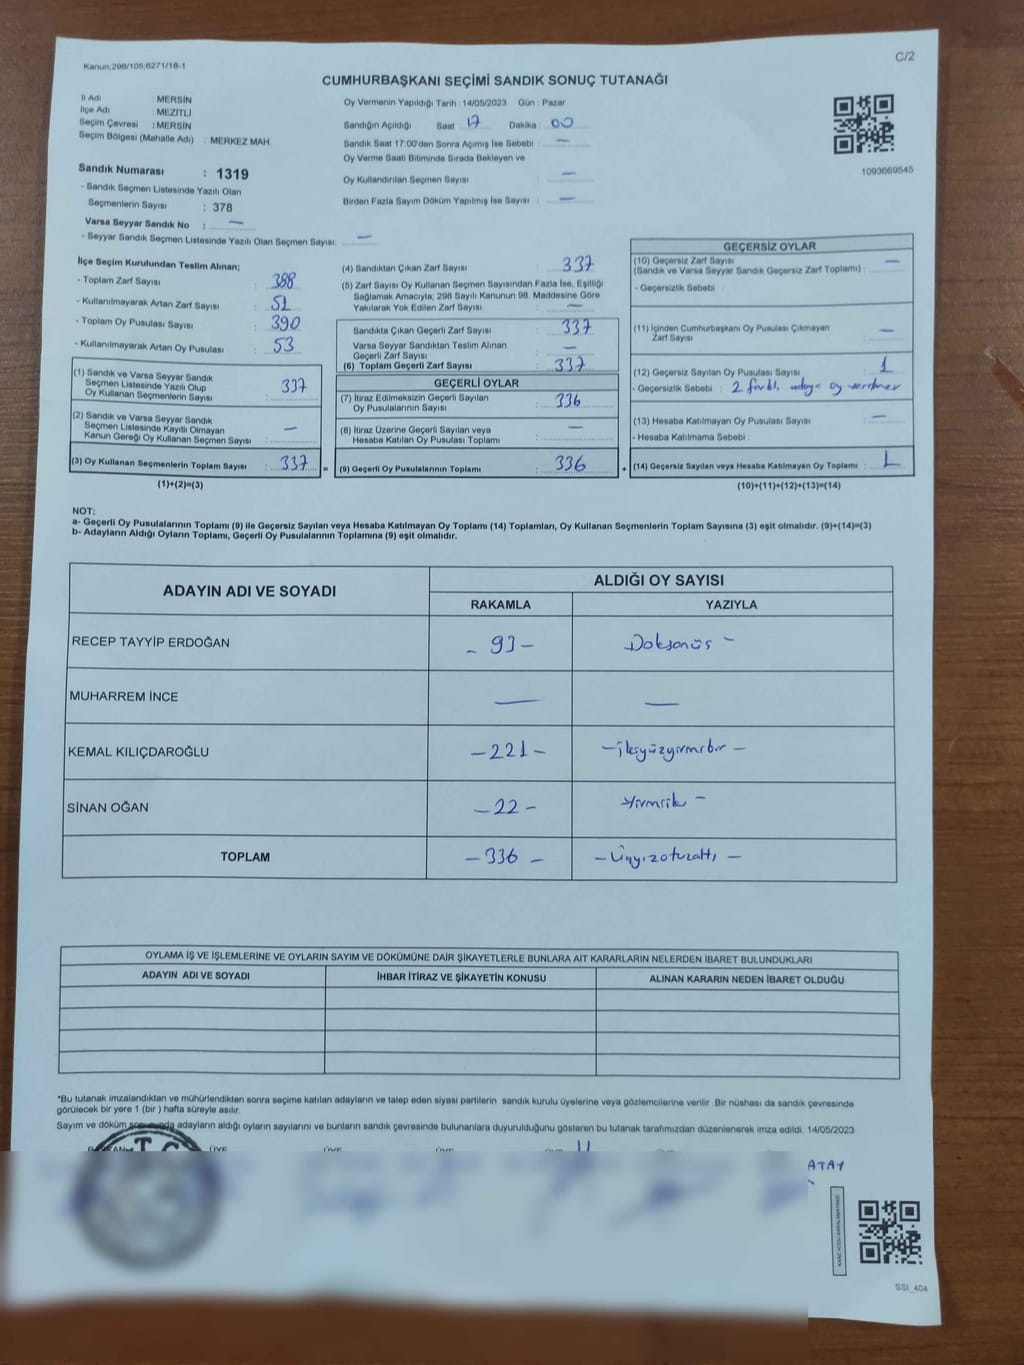 Kanun;298/105;6271/18-1
C/2
CUMHURBAŞKANI SEÇİMİ SANDIK SONUÇ TUTANAĞI
İl Adı : MERSİN
İlçe Adı : MEZİTLİ
Seçim Çevresi : MERSİN
Seçim Bölgesi (Mahalle Adı) : MERKEZ MAH.
Sandık Numarası : 1319
- Sandık Seçmen Listesinde Yazılı Olan
Seçmenlerin Sayısı : 378
Varsa Seyyar Sandık No : —
- Seyyar Sandık Seçmen Listesinde Yazılı Olan Seçmen Sayısı: —
Oy Vermenin Yapıldığı Tarih : 14/05/2023 Gün : Pazar
Sandığın Açıldığı Saat 17 Dakika : 00
Sandık Saat 17:00'den Sonra Açımış İse Sebebi : —
Oy Verme Saati Bitiminde Sırada Bekleyen ve
Oy Kullandırılan Seçmen Sayısı : —
Birden Fazla Sayım Döküm Yapılmış İse Sayısı : —
1093669545
İlçe Seçim Kurulundan Teslim Alınan;
- Toplam Zarf Sayısı : 388
- Kullanılmayarak Artan Zarf Sayısı : 51
- Toplam Oy Pusulası Sayısı : 390
- Kullanılmayarak Artan Oy Pusulası : 53
(1) Sandık ve Varsa Seyyar Sandık
Seçmen Listesinde Yazılı Olup
Oy Kullanan Seçmenlerin Sayısı : 337
(2) Sandık ve Varsa Seyyar Sandık
Seçmen Listesinde Kayıtlı Olmayan
Kanun Gereği Oy Kullanan Seçmen Sayısı : —
(3) Oy Kullanan Seçmenlerin Toplam Sayısı : 337 =
(1)+(2)=(3)
(4) Sandıktan Çıkan Zarf Sayısı : 337
(5) Zarf Sayısı Oy Kullanan Seçmen Sayısından Fazla İse, Eşitliği
Sağlamak Amacıyla, 298 Sayılı Kanunun 98. Maddesine Göre
Yakılarak Yok Edilen Zarf Sayısı : —
Sandıkta Çıkan Geçerli Zarf Sayısı : 337
Varsa Seyyar Sandıktan Teslim Alınan
Geçerli Zarf Sayısı : —
(6) Toplam Geçerli Zarf Sayısı : 337
GEÇERLİ OYLAR
(7) İtiraz Edilmeksizin Geçerli Sayılan
Oy Pusulasının Sayısı : 336
(8) İtiraz Üzerine Geçerli Sayılan veya
Hesaba Katılan Oy Pusulası Toplamı : —
(9) Geçerli Oy Pusulalarının Toplamı : 336 +
GEÇERSİZ OYLAR
(10) Geçersiz Zarf Sayısı : —
(Sandık ve Varsa Seyyar Sandık Geçersiz Zarf Toplamı)
- Geçersizlik Sebebi :
(11) İçinden Cumhurbaşkanı Oy Pusulası Çıkmayan
Zarf Sayısı : —
(12) Geçersiz Sayılan Oy Pusulası Sayısı : 1
- Geçersizlik Sebebi : 2 farklı adaya oy verilmer
(13) Hesaba Katılmayan Oy Pusulası Sayısı : —
- Hesaba Katılmama Sebebi :
(14) Geçersiz Sayılan veya Hesaba Katılmayan Oy Toplamı : 1
(10)+(11)+(12)+(13)=(14)
NOT:
a- Geçerli Oy Pusulalarının Toplamı (9) ile Geçersiz Sayılan veya Hesaba Katılmayan Oy Toplamı (14) Toplamları, Oy Kullanan Seçmenlerin Toplam Sayısına (3) eşit olmalıdır. (9)+(14)=(3)
b- Adayların Aldığı Oyların Toplamı, Geçerli Oy Pusulalarının Toplamına (9) eşit olmalıdır.
ADAYIN ADI VE SOYADI
ALDIĞI OY SAYISI
RAKAMLA YAZIYLA
RECEP TAYYİP ERDOĞAN - 93 - Doksanüs -
MUHARREM İNCE — —
KEMAL KILIÇDAROĞLU - 221 - - ikiyüzyirmibir -
SİNAN OĞAN - 22 - Yirmiiki -
TOPLAM - 336 - - Üçyüzotuzaltı -
OYLAMA İŞ VE İŞLEMLERİNE VE OYLARIN SAYIM VE DÖKÜMÜNE DAİR ŞİKAYETLERLE BUNLARA AİT KARARLARIN NELERDEN İBARET BULUNDUKLARI
ADAYIN ADI VE SOYADI İHBAR İTİRAZ VE ŞİKAYETİN KONUSU ALINAN KARARIN NEDEN İBARET OLDUĞU
*Bu tutanak imzalandıktan ve mühürlendikten sonra seçime katılan adayların ve talep eden siyasi partilerin sandık kurulu üyelerine veya gözlemcilerine verilir .Bir nüshası da sandık çevresinde
görülecek bir yere 1 (bir ) hafta süreyle asılır.
Sayım ve döküm sonucunda adayların aldığı oyların sayılarını ve bunların sandık çevresinde bulunanlara duyurulduğunu gösteren bu tutanak tarafımızdan düzenlenerek imza edildi. 14/05/2023
T.C
ATAY
SSI_404